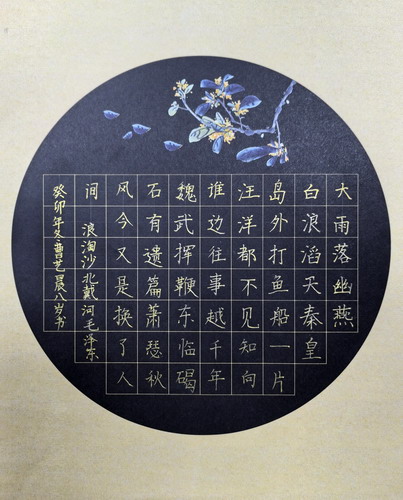 大雨落幽燕
白浪滔天秦皇
岛外打鱼船一片
汪洋都不见知向
谁边往事越千年
魏武挥鞭东临碣
石有遗篇萧瑟秋
风今又是换了人
间
浪淘沙北戴河毛泽东
癸卯年冬曹艺晨八岁书